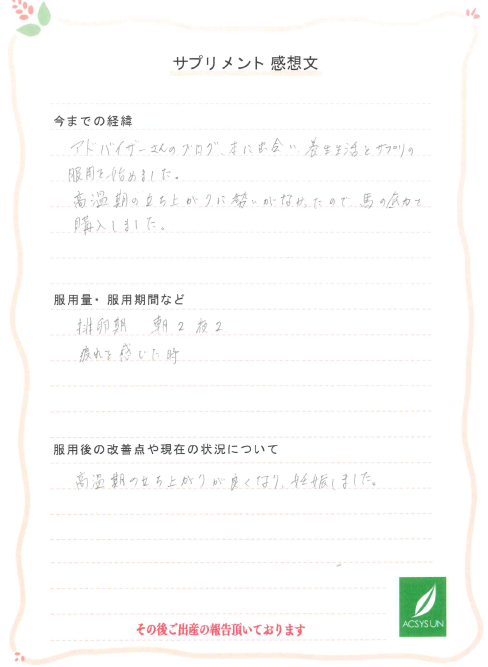 サプリメント 感想文
今までの経緯
アドバイザーさんのブログ、本に出会い、養生生活とサプリの
服用を始めました。
高温期の立ち上がりに勢いがなかったので 馬の底力を
購入しました。
服用量・服用期間など
排卵期 朝2 夜2
疲れを感じた時
服用後の改善点や現在の状況について
高温期の立ち上がりが良くなり、妊娠しました。
その後ご出産の報告頂いております
ACSYSUN